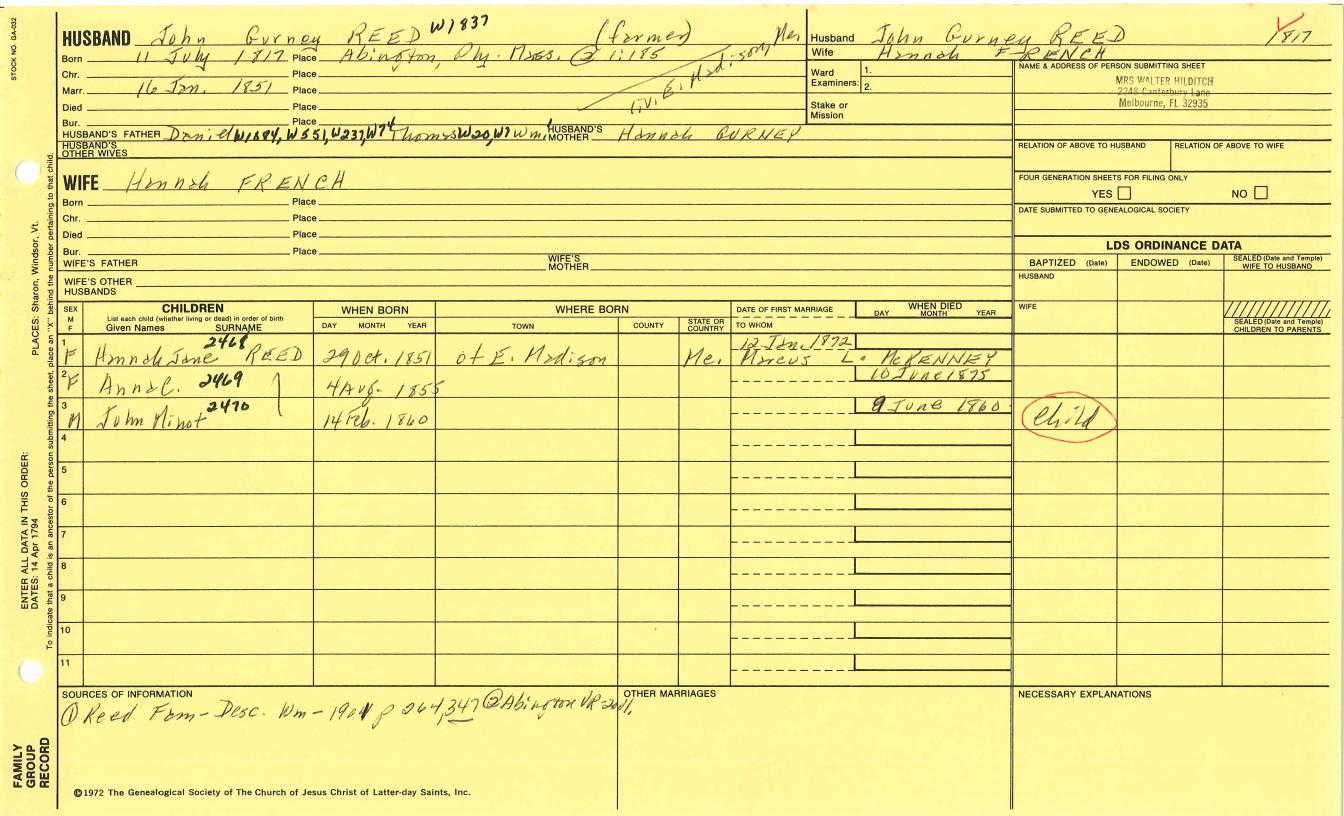 STOCK NO. GA-032
HUSBAND John Gurney REED W1837 (farmer)
Born 11 July 1817 Place Abington, Ply. Mass. @ 1:185
Chr. Place
Marr. 16 Jan. 1851 Place
liv. E. Madison, Me.
Died Place
Bur. Place
HUSBAND'S FATHER Daniel W1084, W551, W237, W74 Thomas W20, W7 Wm.' HUSBAND'S MOTHER Hannah GURNEY
HUSBAND'S OTHER WIVES
WIFE Hannah FRENCH
Born Place
Chr. Place
Died Place
Bur. Place
WIFE'S FATHER WIFE'S MOTHER
WIFE'S OTHER HUSBANDS
Husband John Gurney REED 1817
Wife Hannah FRENCH
Ward Examiners: 1.
2.
Stake or Mission
NAME & ADDRESS OF PERSON SUBMITTING SHEET
MRS WALTER HILDITCH
2248 Canterbury Lane
Melbourne, FL 32935
RELATION OF ABOVE TO HUSBAND RELATION OF ABOVE TO WIFE
FOUR GENERATION SHEETS FOR FILING ONLY
YES NO
DATE SUBMITTED TO GENEALOGICAL SOCIETY
LDS ORDINANCE DATA
BAPTIZED (Date) ENDOWED (Date) SEALED (Date and Temple) WIFE TO HUSBAND
HUSBAND
WIFE
SEALED (Date and Temple) CHILDREN TO PARENTS
SEX M F CHILDREN WHEN BORN WHERE BORN DATE OF FIRST MARRIAGE WHEN DIED
List each child (whether living or dead) in order of birth
Given Names SURNAME DAY MONTH YEAR TOWN COUNTY STATE OR COUNTRY TO WHOM DAY MONTH YEAR
2468 12 Jan. 1872
1 F Hannah Jane REED 29 Oct. 1851 of E. Madison Me. Marcus L. McKENNEY
2 F Anna C. 2469 4 Aug. 1855 10 June 1875
3 M John Minot 2470 14 Feb. 1860 9 June 1860 Child
4
5
6
7
8
9
10
11
SOURCES OF INFORMATION
① Reed Fam- Desc. Wm - 1901 p 264, 347 ② Abington VR-
OTHER MARRIAGES
NECESSARY EXPLANATIONS
©1972 The Genealogical Society of The Church of Jesus Christ of Latter-day Saints, Inc.
FAMILY GROUP RECORD
ENTER ALL DATA IN THIS ORDER:
DATES: 14 Apr 1794 PLACES: Sharon, Windsor, Vt.
To indicate that a child is an ancestor of the person submitting the sheet, place an "X" behind the number pertaining to that child.